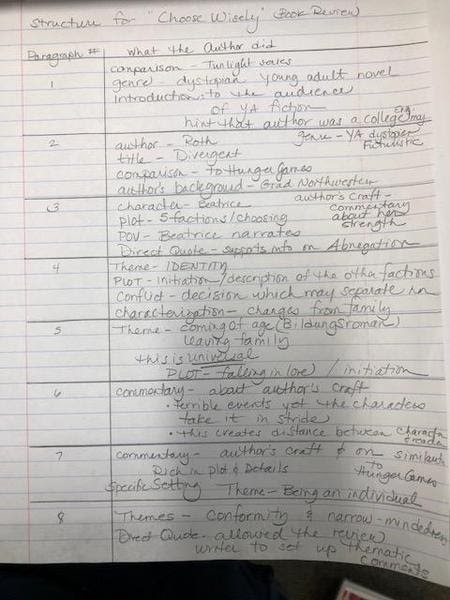 Structure for "Choose Wisely" (Book Review)
Paragraph # What the Author did
1 comparison - Twilight series
genre - dystopian young adult novel
Introduction to the audience
of YA fiction
hint that author was a college Eng. maj
2 author - Roth genre - YA dystopia
Futuristic
title - Divergent
comparison - to Hunger Games
author's background - Grad Northwestern
3 character - Beatrice author's craft -
commentary
about her
strength
Plot - 5 factions/choosing
POV - Beatrice narrates
Direct Quote - supports info on Abnegation
4 Theme - IDENTITY
PLOT - initiation/description of the other factions
Conflict - decision which may separate
characterization - changes from family
5 Theme - Coming of age (Bildungsroman)
leaving family
this is universal
PLOT - falling in love / initiation
6 commentary - about author's craft
• terrible events yet the characters
take it in stride
• this creates distance between character
reader
7 commentary - author's craft & on similarities
to
Hunger Games
Rich in plot & Details
Specific Setting Theme - Being an individual
8 Themes - Conformity & narrow-mindedness
Direct Quote - allowed the review
writer to set up thematic
comments